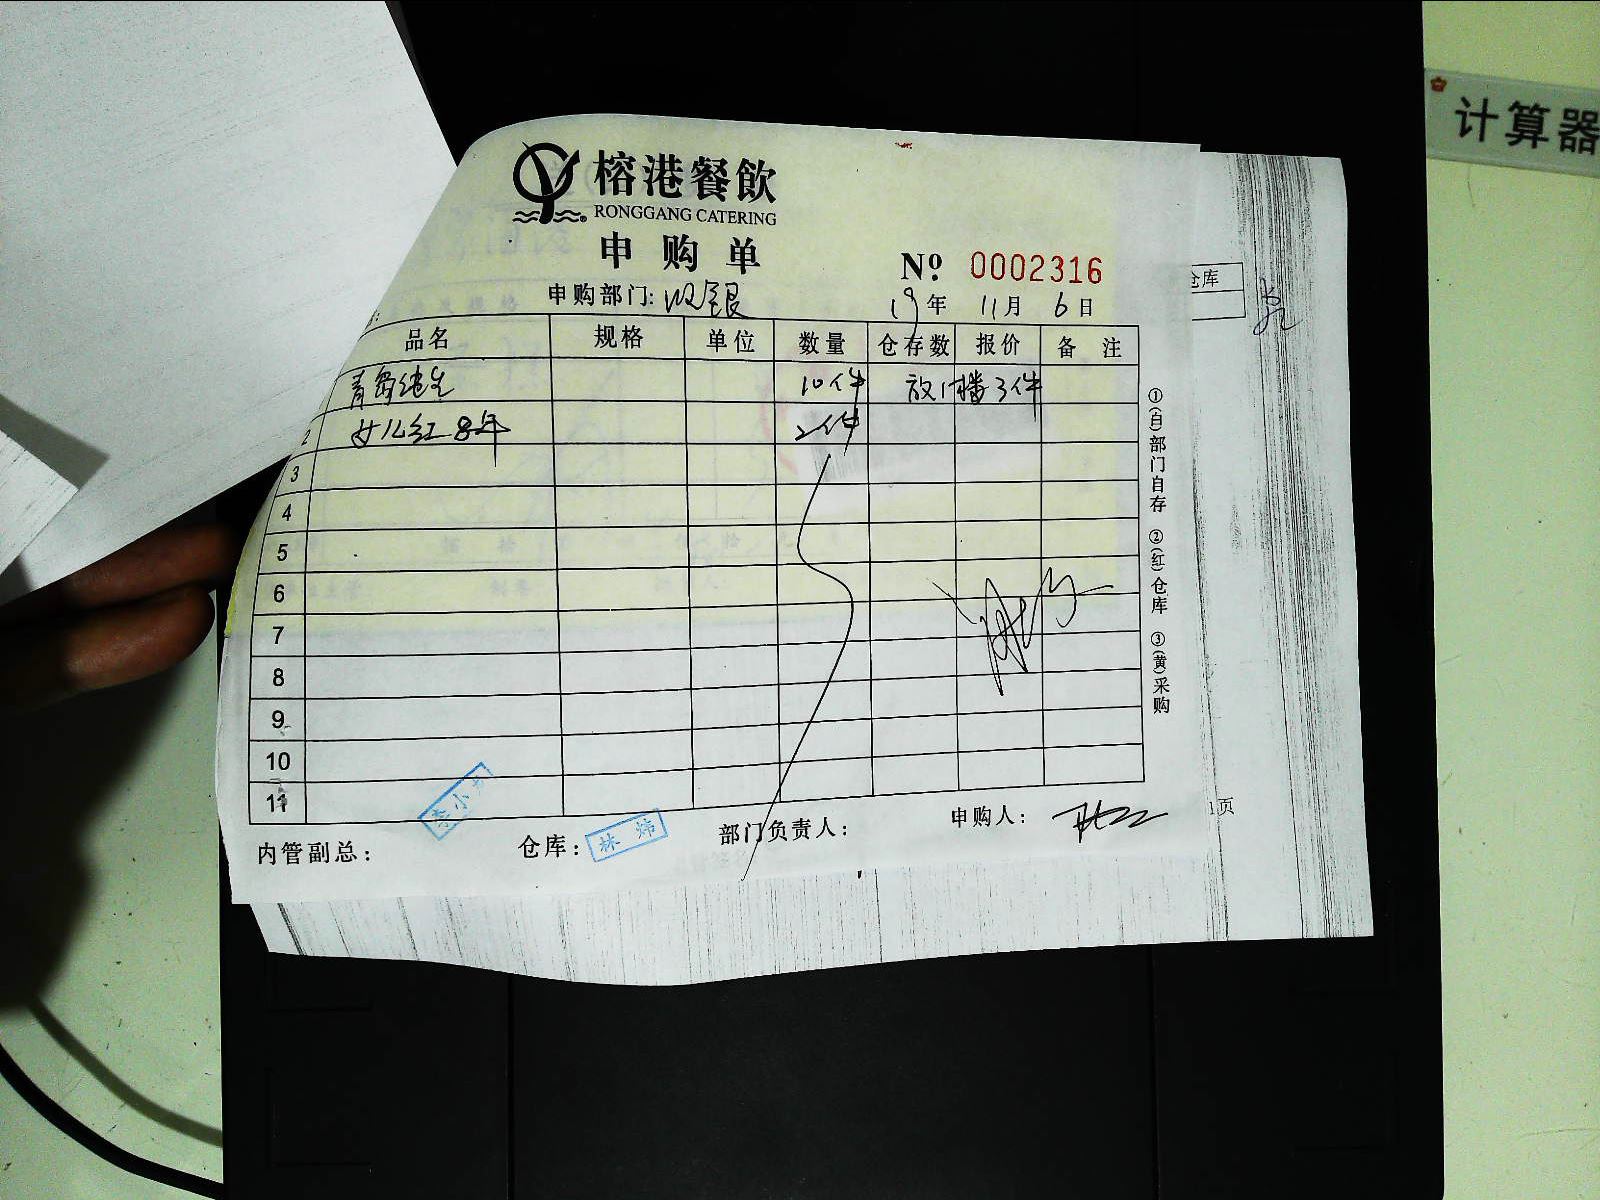 计算器
榕港餐飲
RONGGANG CATERING
申购单
№ 0002316
申购部门: 收银
19年 11月 6日
品名 规格 单位 数量 仓存数 报价 备注
青岛纯生 10件
女儿红8年 2件
2
3
4
5
6
7
8
9
10
11
①(白)部门自存 ②(红)仓库 ③(黄)采购
内管副总: 李小
仓库: 林炜
部门负责人:
申购人:
仓库
1页